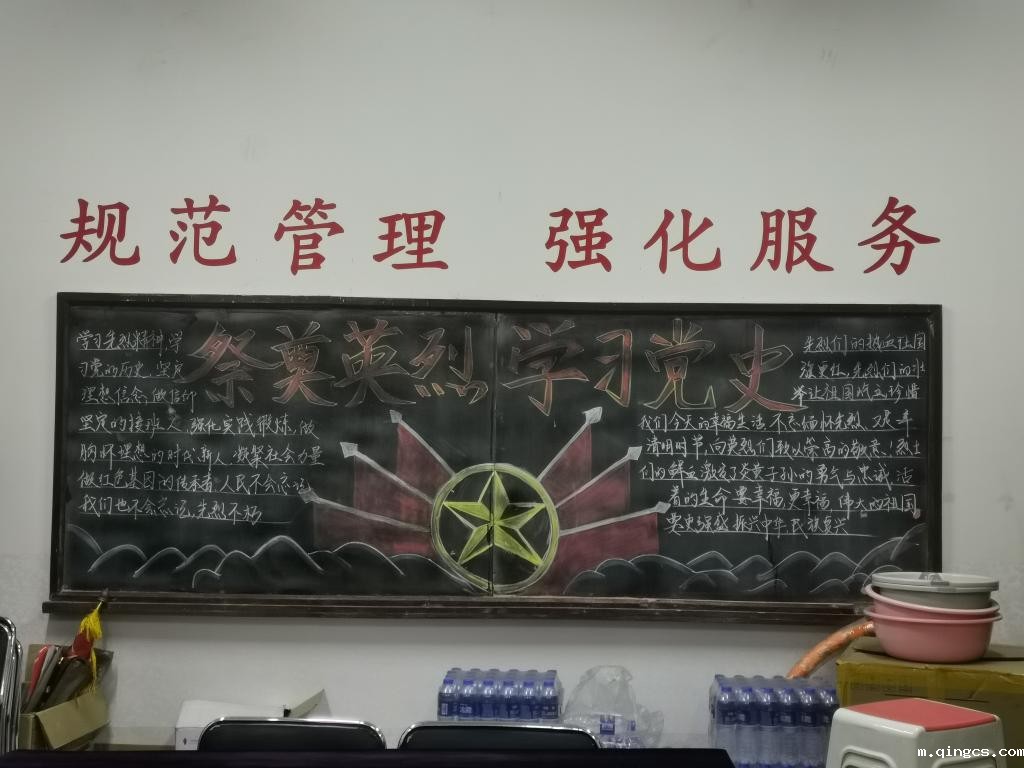 规范管理 强化服务
祭奠英烈 学习党史
学习先烈精神 学
习党的历史 坚定
理想信念 做信仰
坚定的接班人 强化实践锻炼 做
胸怀理想的时代新人 凝聚社会力量
做红色基因的传承者 人民不会忘记
我们也不会忘记 先烈不朽
先烈们的热血让国
强更壮 先烈们的壮
举让祖国屹立
我们今天的幸福生活 不忘缅怀先烈
清明时节,向英烈们致以崇高的敬意!烈士
们的鲜血激发了炎黄子孙的勇气与忠诚 活
着的生命要幸福,更幸福 伟大的祖国
要更强盛 振兴中华 民族复兴
m.qingcs.com